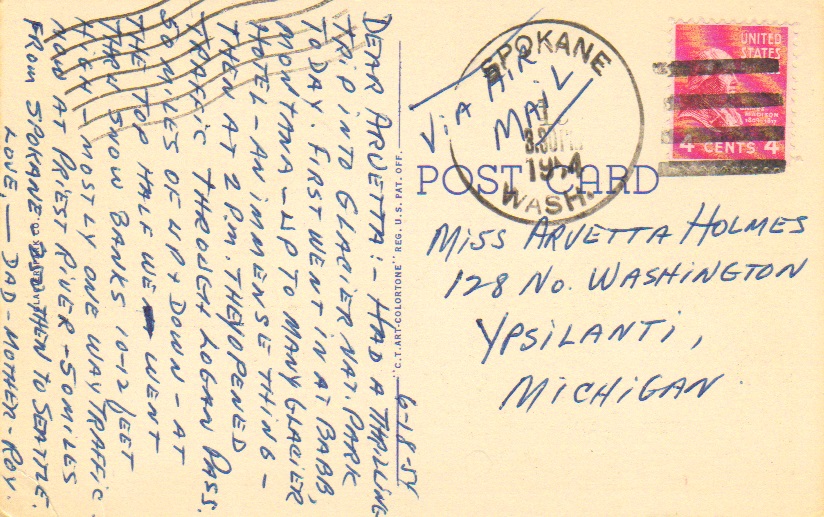 6-18-54
DEAR ARVETTA:- HAD A THRILLING
TRIP INTO GLACIER NAT. PARK
TO DAY. FIRST WENT IN AT BABB,
MONTANA - UP TO MANY GLACIER
HOTEL - AN IMMENSE THING -
THEN AT 2 PM. THEY OPENED
TRAFFIC THROUGH LOGAN PASS.
50 MILES OF UP + DOWN - AT
THE TOP HALF WE WENT
THRU SNOW BANKS 10-12 FEET
HIGH - MOSTLY ONE WAY TRAFFIC.
NOW AT PRIEST RIVER - 50 MILES
FROM SPOKANE AND THEN TO SEATTLE.
LOVE, - DAD - MOTHER - ROY.
"C.T. ART-COLORTONE" REG. U.S. PAT. OFF.
VIA AIR
MAIL
SPOKANE
1954
WASH.
UNITED
STATES
MADISON
4 CENTS 4
POST CARD
MISS ARVETTA HOLMES
128 NO. WASHINGTON
YPSILANTI,
MICHIGAN